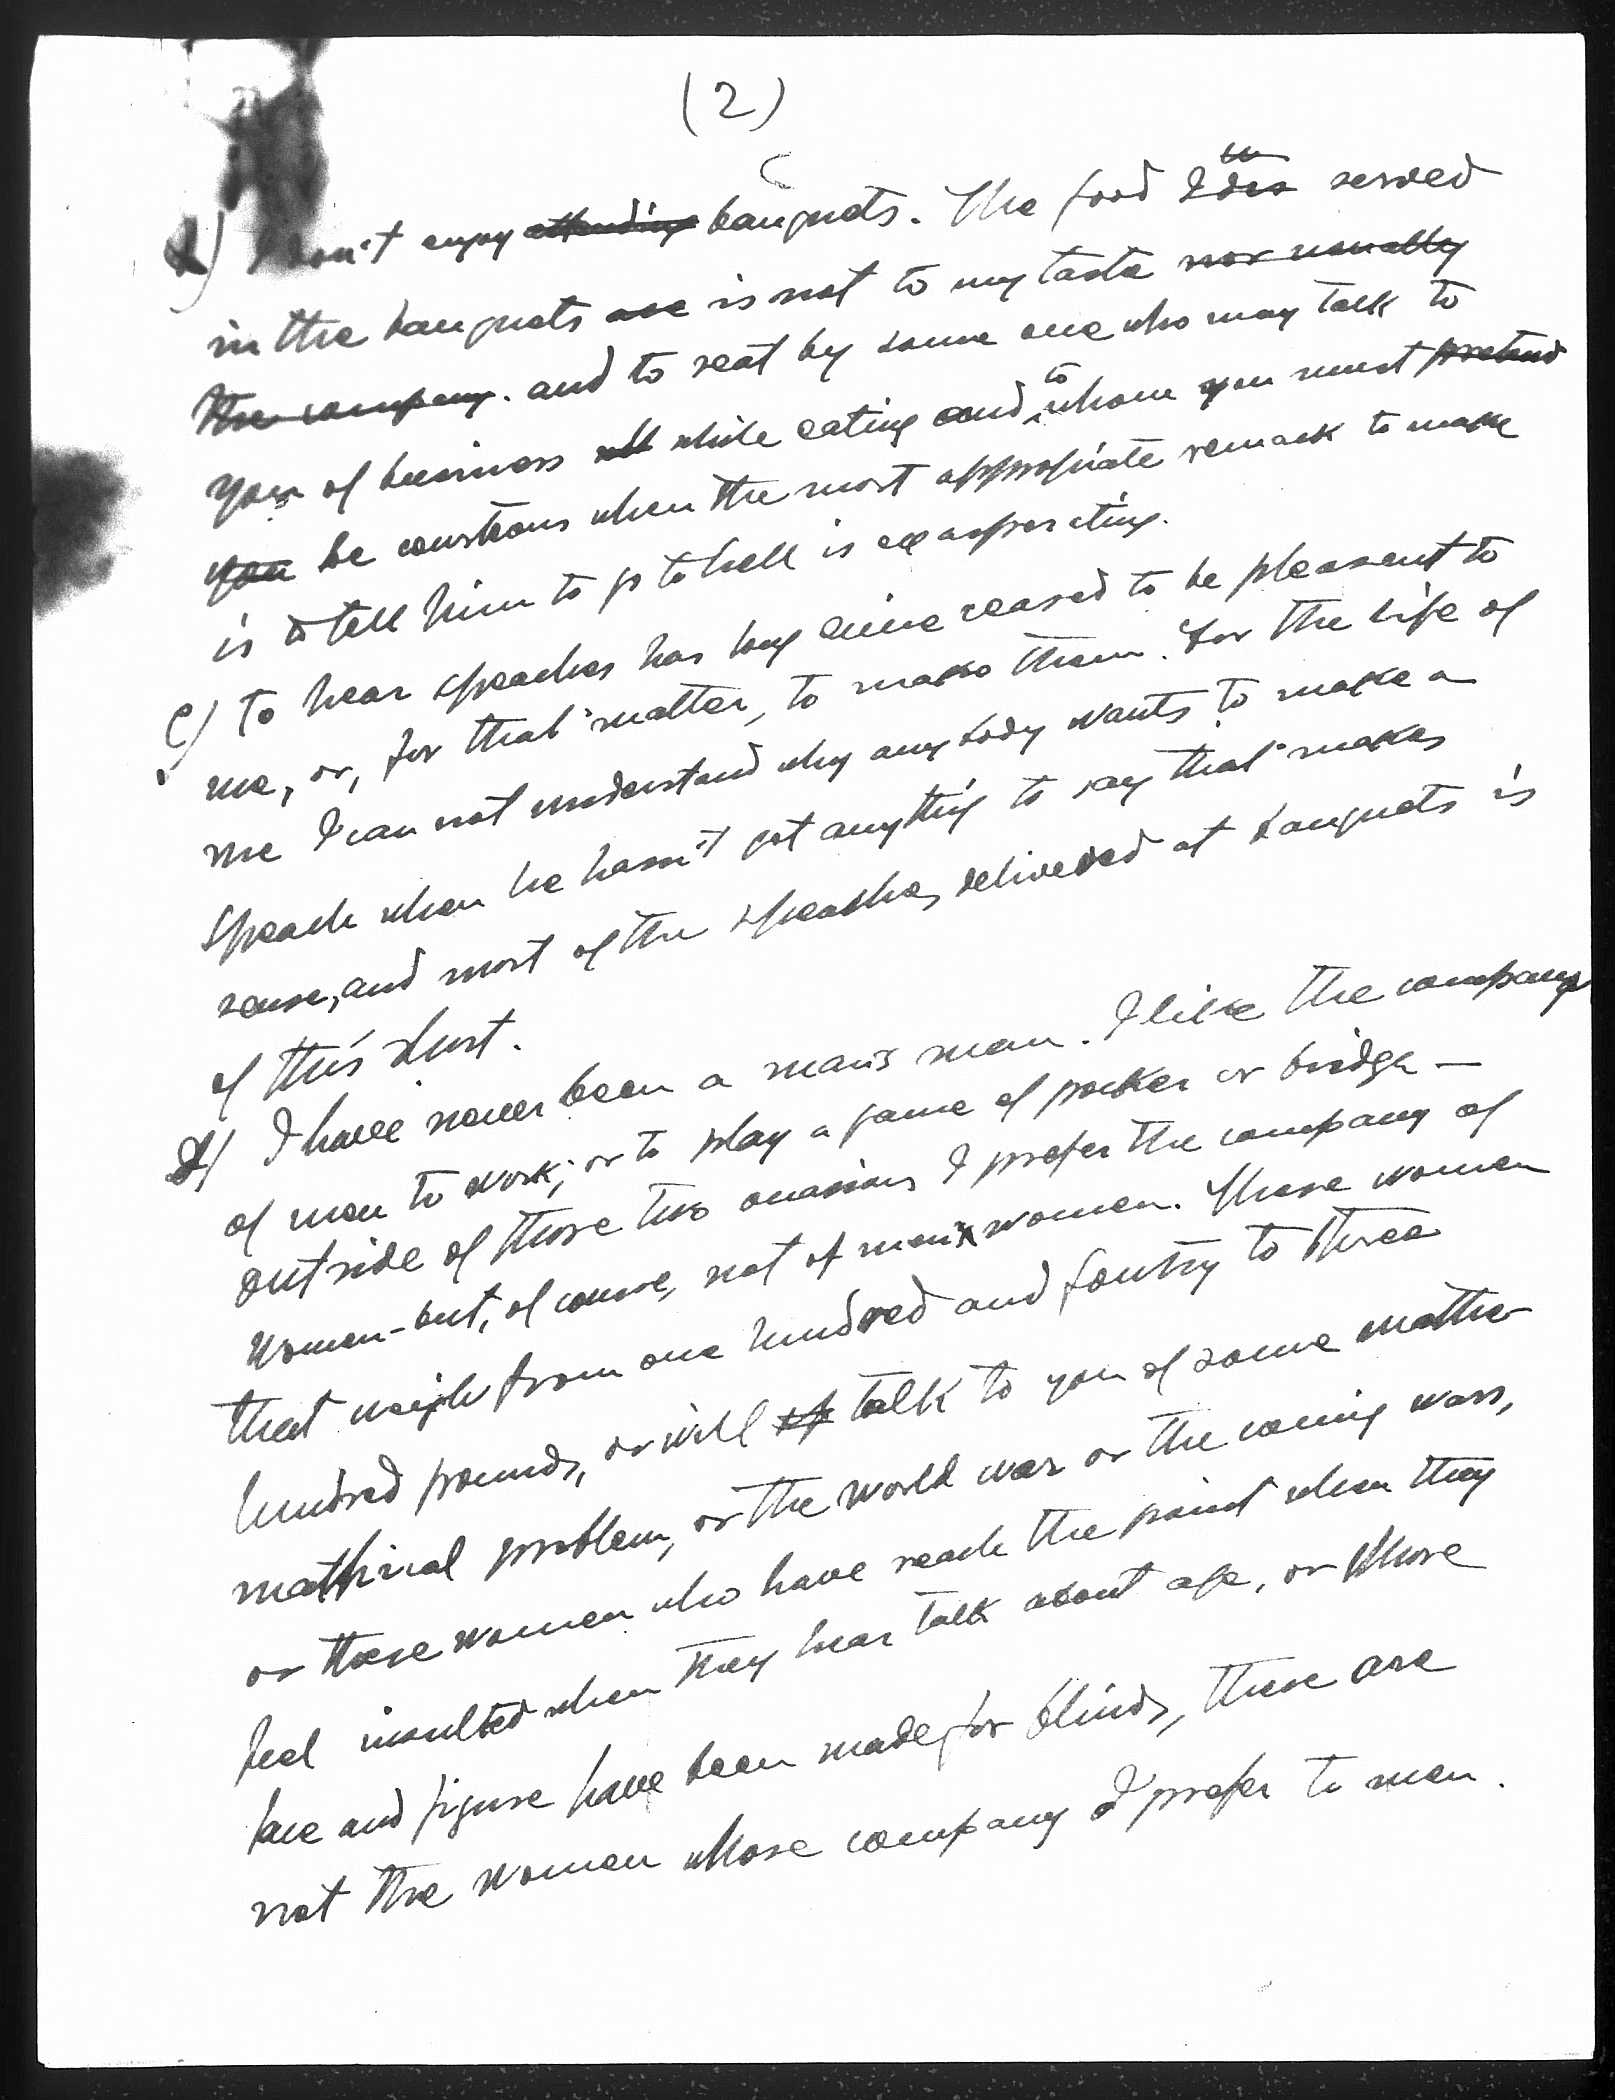 (2)
b) I don't enjoy attending banquets. The food served
in the banquets are is not to my taste nor usually
the company. and to seat by some one who may talk to
you of business while eating and to whom you must pretend
you be courteous when the most appropriate remark to make
is to tell him to go to hell is exasperating.
c) To hear speaches has long since ceased to be pleasent to
me, or, for that matter, to make them. For the life of
me I can not understand why any body wants to make a
speach when he hasn't got anything to say that makes
sense, and most of the speaches delivered at banquets is
of this sort.
d) I have never been a man's man. I like the company
of men to work, or to play a game of poker or bridge —
outside of those two occasions I prefer the company of
women - but, of course, not of many women. Those women
that weigh from one hundred and fourty to three
hundred pounds, or will talk to you of some mathe
matical problem, or the world war or the coming wars,
or those women who have reach the point when they
feel insulted when they hear talk about age, or whose
face and figure have been made for blinds, these are
not the women whose company I prefer to men.